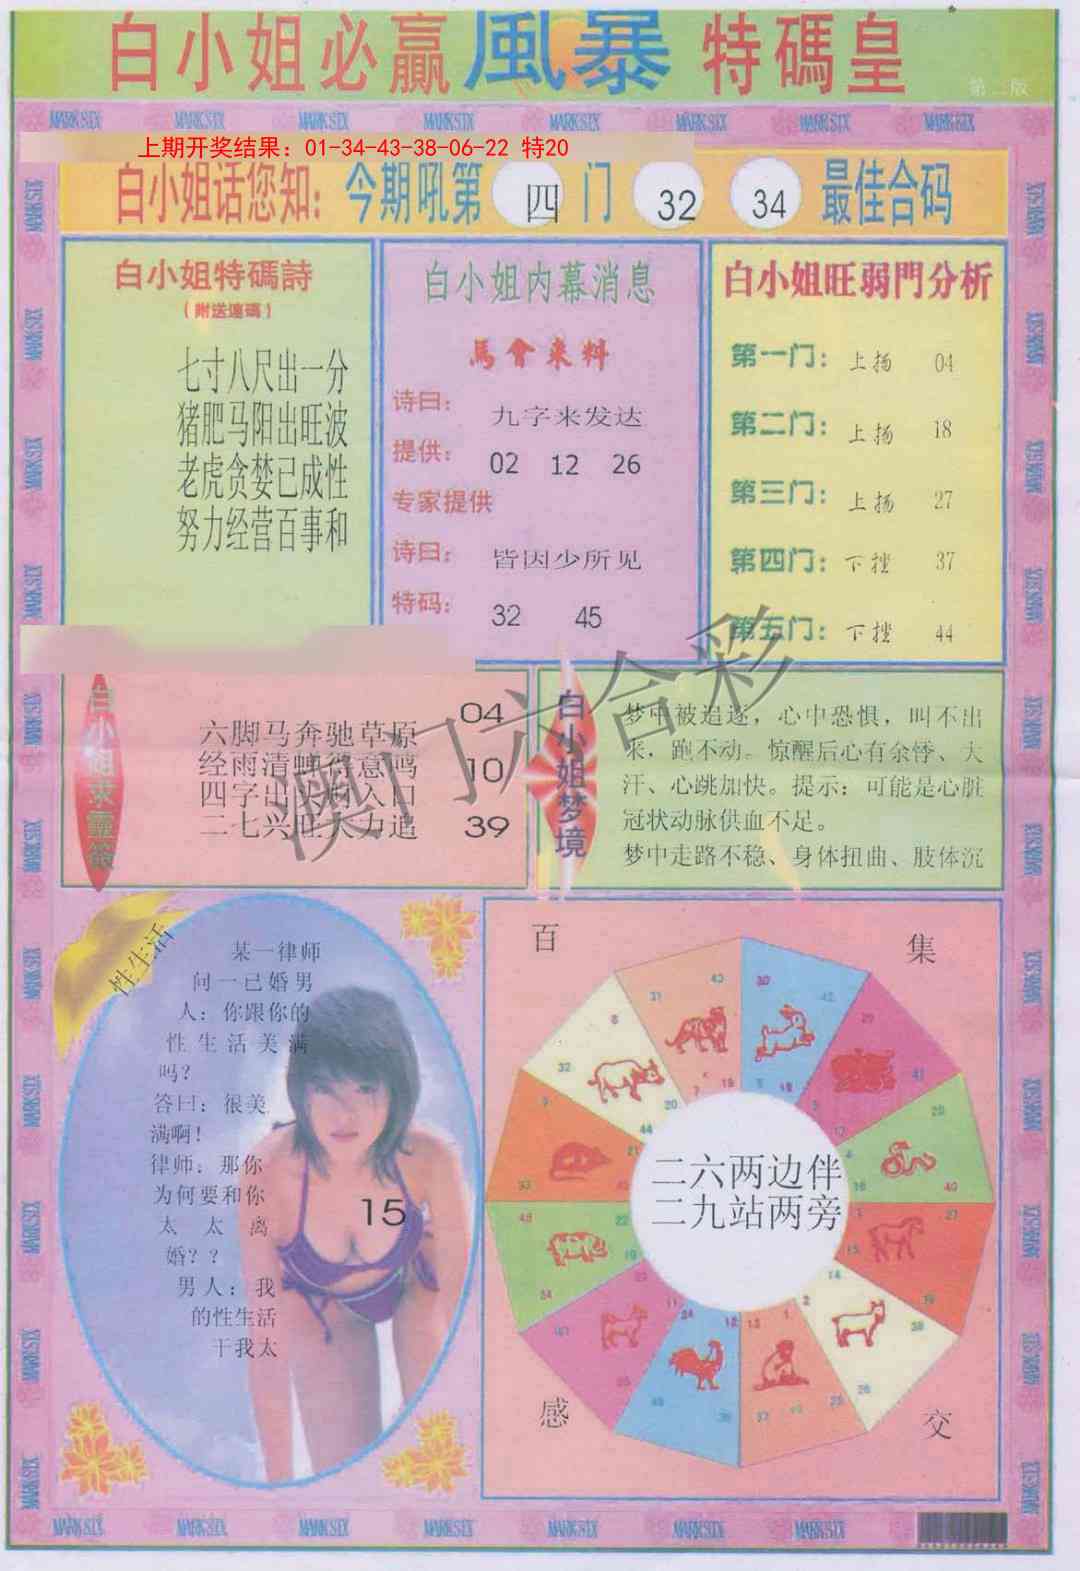 白小姐必贏風暴特碼皇
第二版
MARK SIX MARK SIX MARK SIX MARK SIX MARK SIX MARK SIX MARK SIX MARK SIX
上期开奖结果：01-34-43-38-06-22 特20
白小姐话您知：今期吼第 四 门 32 34 最佳合码
白小姐特碼詩
（附送連碼）
七寸八尺出一分
猪肥马阳出旺波
老虎贪婪已成性
努力经营百事和
白小姐内幕消息
馬會來料
诗曰：九字来发达
提供：02 12 26
专家提供
诗曰：皆因少所见
特码：32 45
白小姐旺弱門分析
第一门：上扬 04
第二门：上扬 18
第三门：上扬 27
第四门：下挫 37
第五门：下挫 44
白小姐求靈簽
六脚马奔驰草原 04
经雨清蝉得意鸣 10
四字出头对入口
二七兴旺大力追 39
澳门六合彩
白小姐梦境
梦中被追逐，心中恐惧，叫不出
来，跑不动。惊醒后心有余悸、大
汗、心跳加快。提示：可能是心脏
冠状动脉供血不足。
梦中走路不稳、身体扭曲、肢体沉
性生活
某一律师
问一已婚男
人：你跟你的
性生活美满
吗？
答曰：很美
满啊！
律师：那你
为何要和你
太太离
婚？？
男人：我
的性生活
干我太
15
百 集
二六两边伴
二九站两旁
感 交
MARK SIX MARK SIX MARK SIX MARK SIX MARK SIX MARK SIX MARK SIX